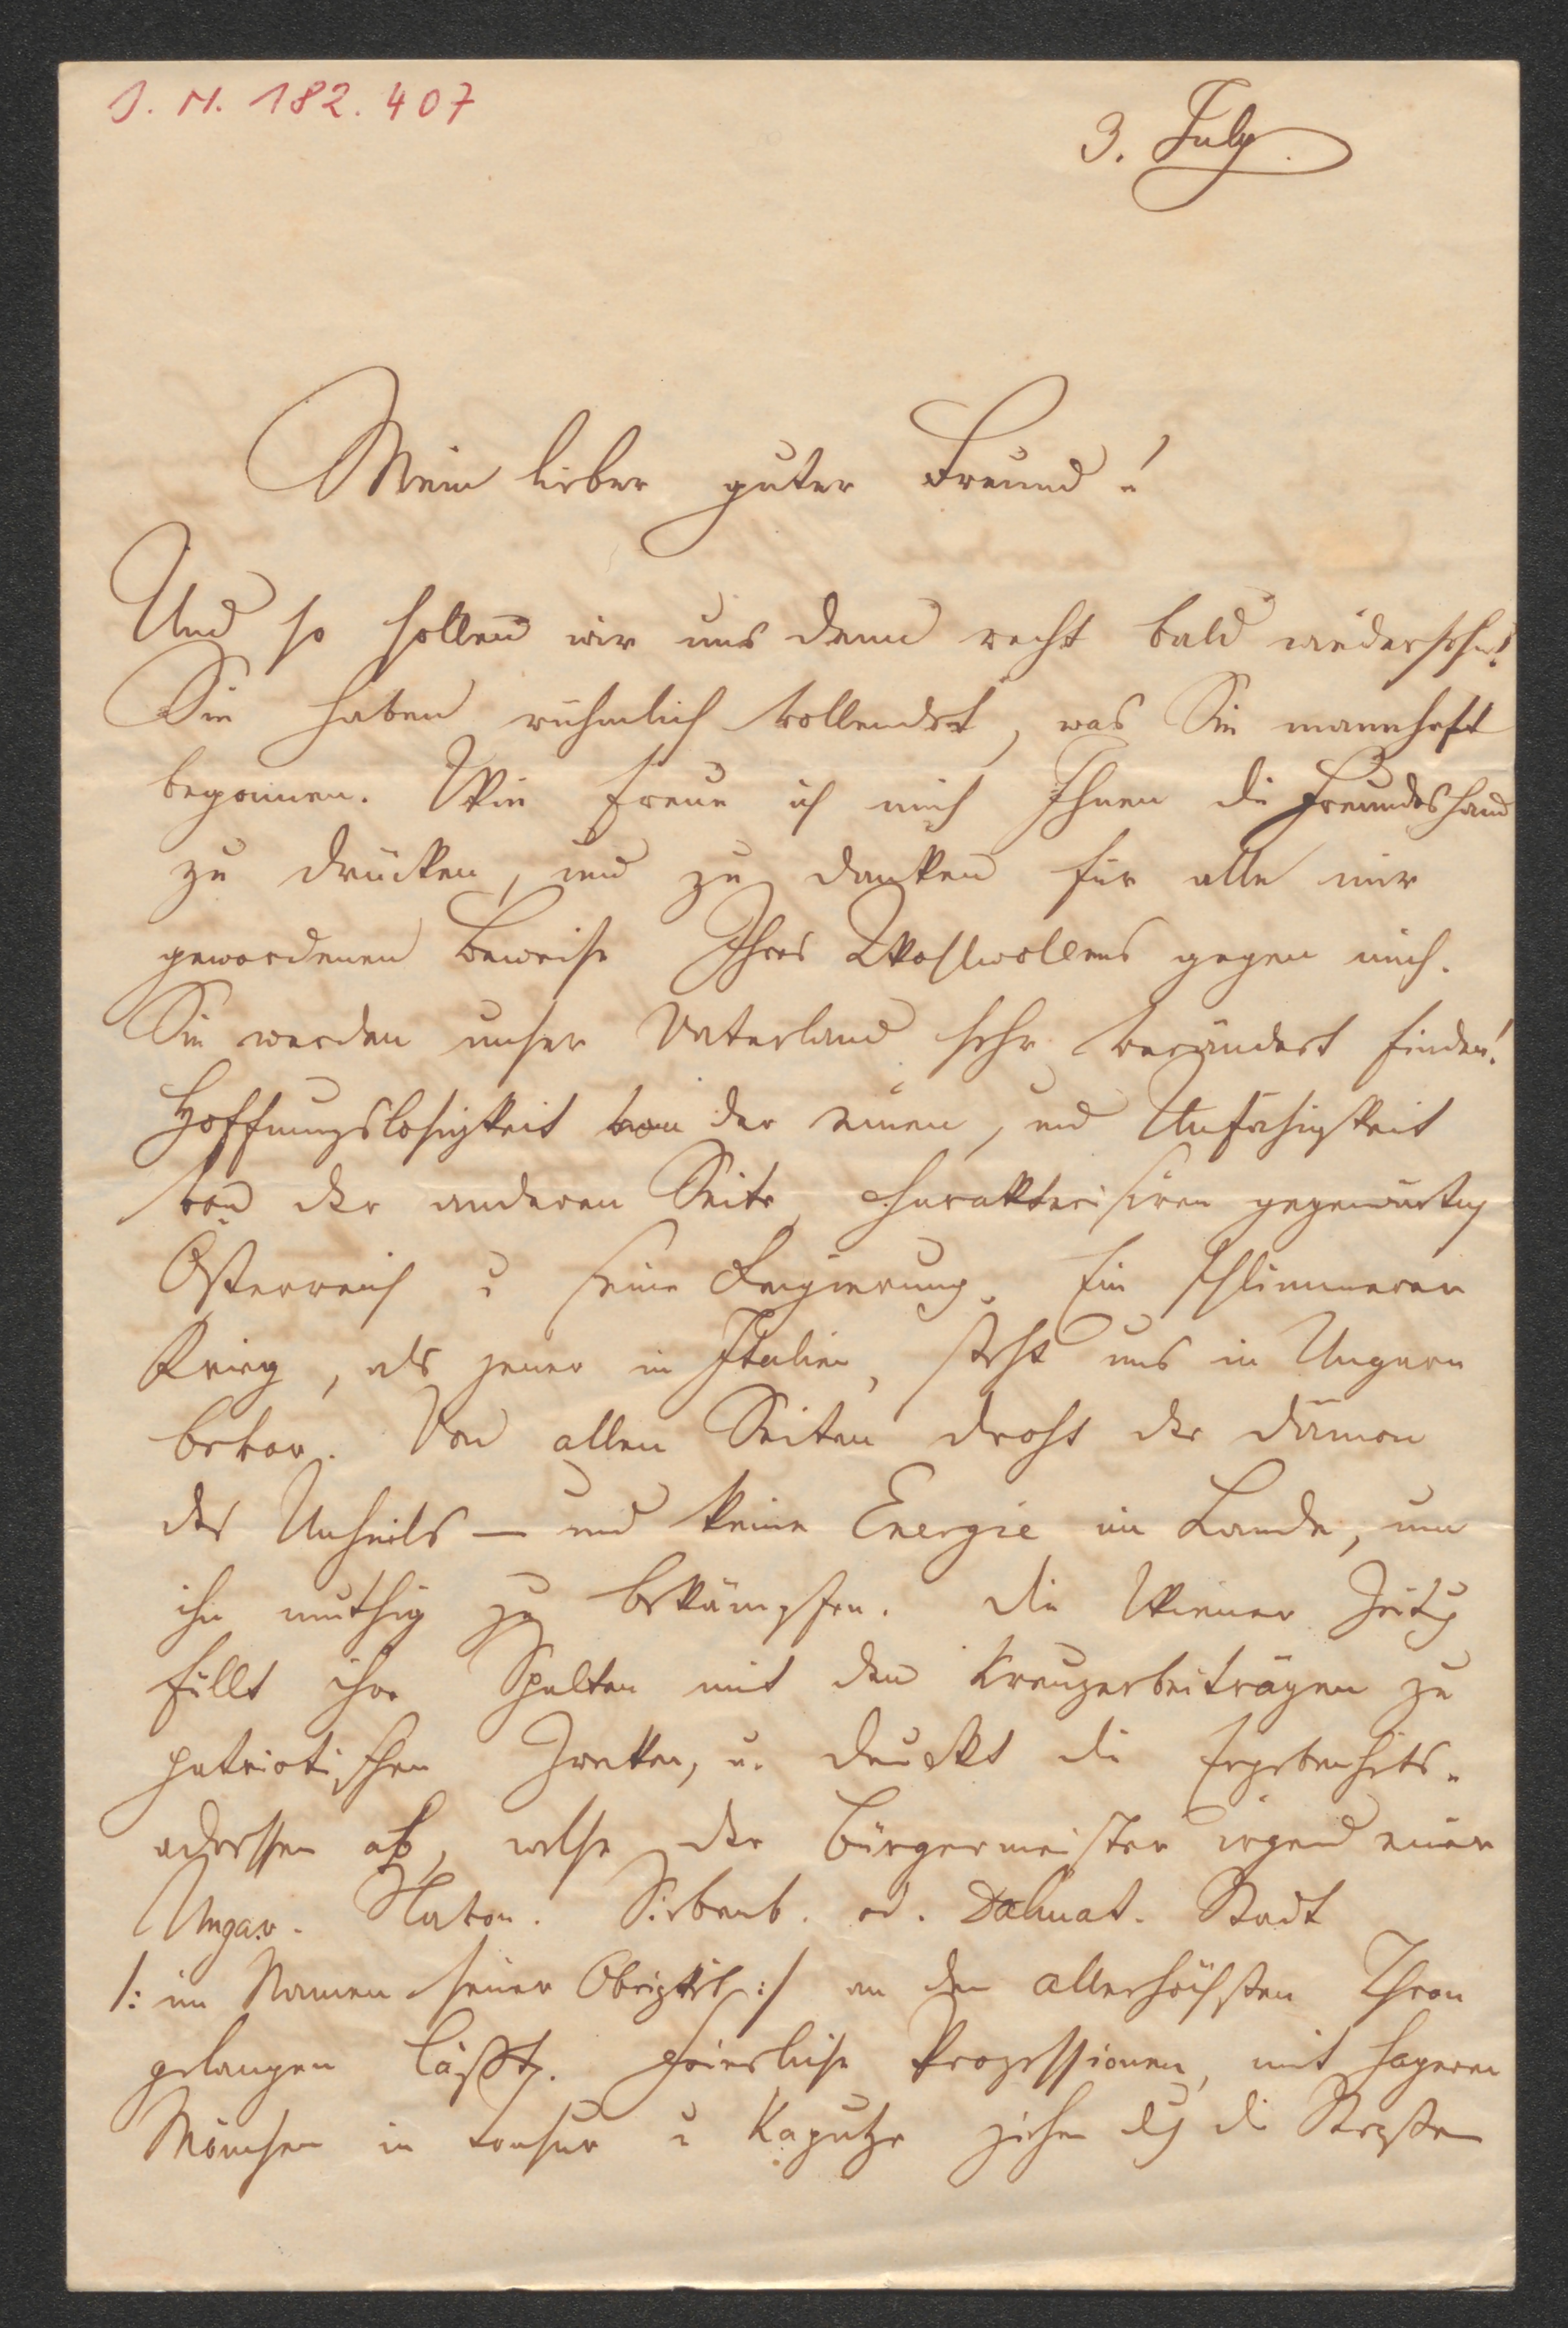 J. N. 182.407
3. July.
Mein lieber guter Freund!
Und so sollen wir uns denn recht bald wiedersehn!
Sie haben rühmlich vollendet, was Sie mannhaft
begonnen. Wie freue ich mich Ihnen die Freundeshand
zu drücken, und zu danken für alle mir
gewordenen Beweise Ihres Wohlwollens gegen mich.
Sie werden unser Vaterland sehr verändert finden!
Hoffnungslosigkeit von der einen, und Unfähigkeit
von der anderen Seite, charakterisiren gegenwärtig
Österreich u seine Regierung. Ein schlimmerer
Krieg, als jener in Italien, steht uns in Ungarn
bevor. Von allen Seiten droht der Dämon
des Unheils — und keine Energie im Lande, um
ihn muthig zu bekämpfen. Die Wiener Zeitg
füllt ihre Spalten mit den Kreuzerbeiträgen zu
patriotischen Zwecken, u. druckt die Ergebenheits-
adressen ab, welche der Bürgermeister irgend einer
Ungar. Slavon. Siebenb. od. Dalmat. Stadt
/: im Namen seiner Obrigkeit :/ an den allerhöchsten Thron
gelangen läßt. Feierliche Prozessionen, mit hageren
Mönchen in Tonsur u Kaputze ziehen dch die Straßen